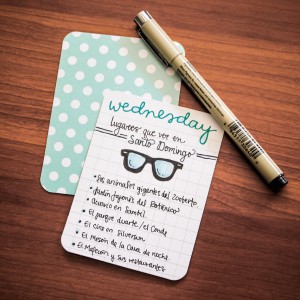 wednesday
lugares que ver en
Santo Domingo
• los animales gigantes del zooberto
• Jardín Japonés del Botánico
• Acuario en Sambil
• El parque duarte / el Conde
• El cine en Silversun
• El Mesón de la Cava de noche
• El Malecón y sus restaurantes